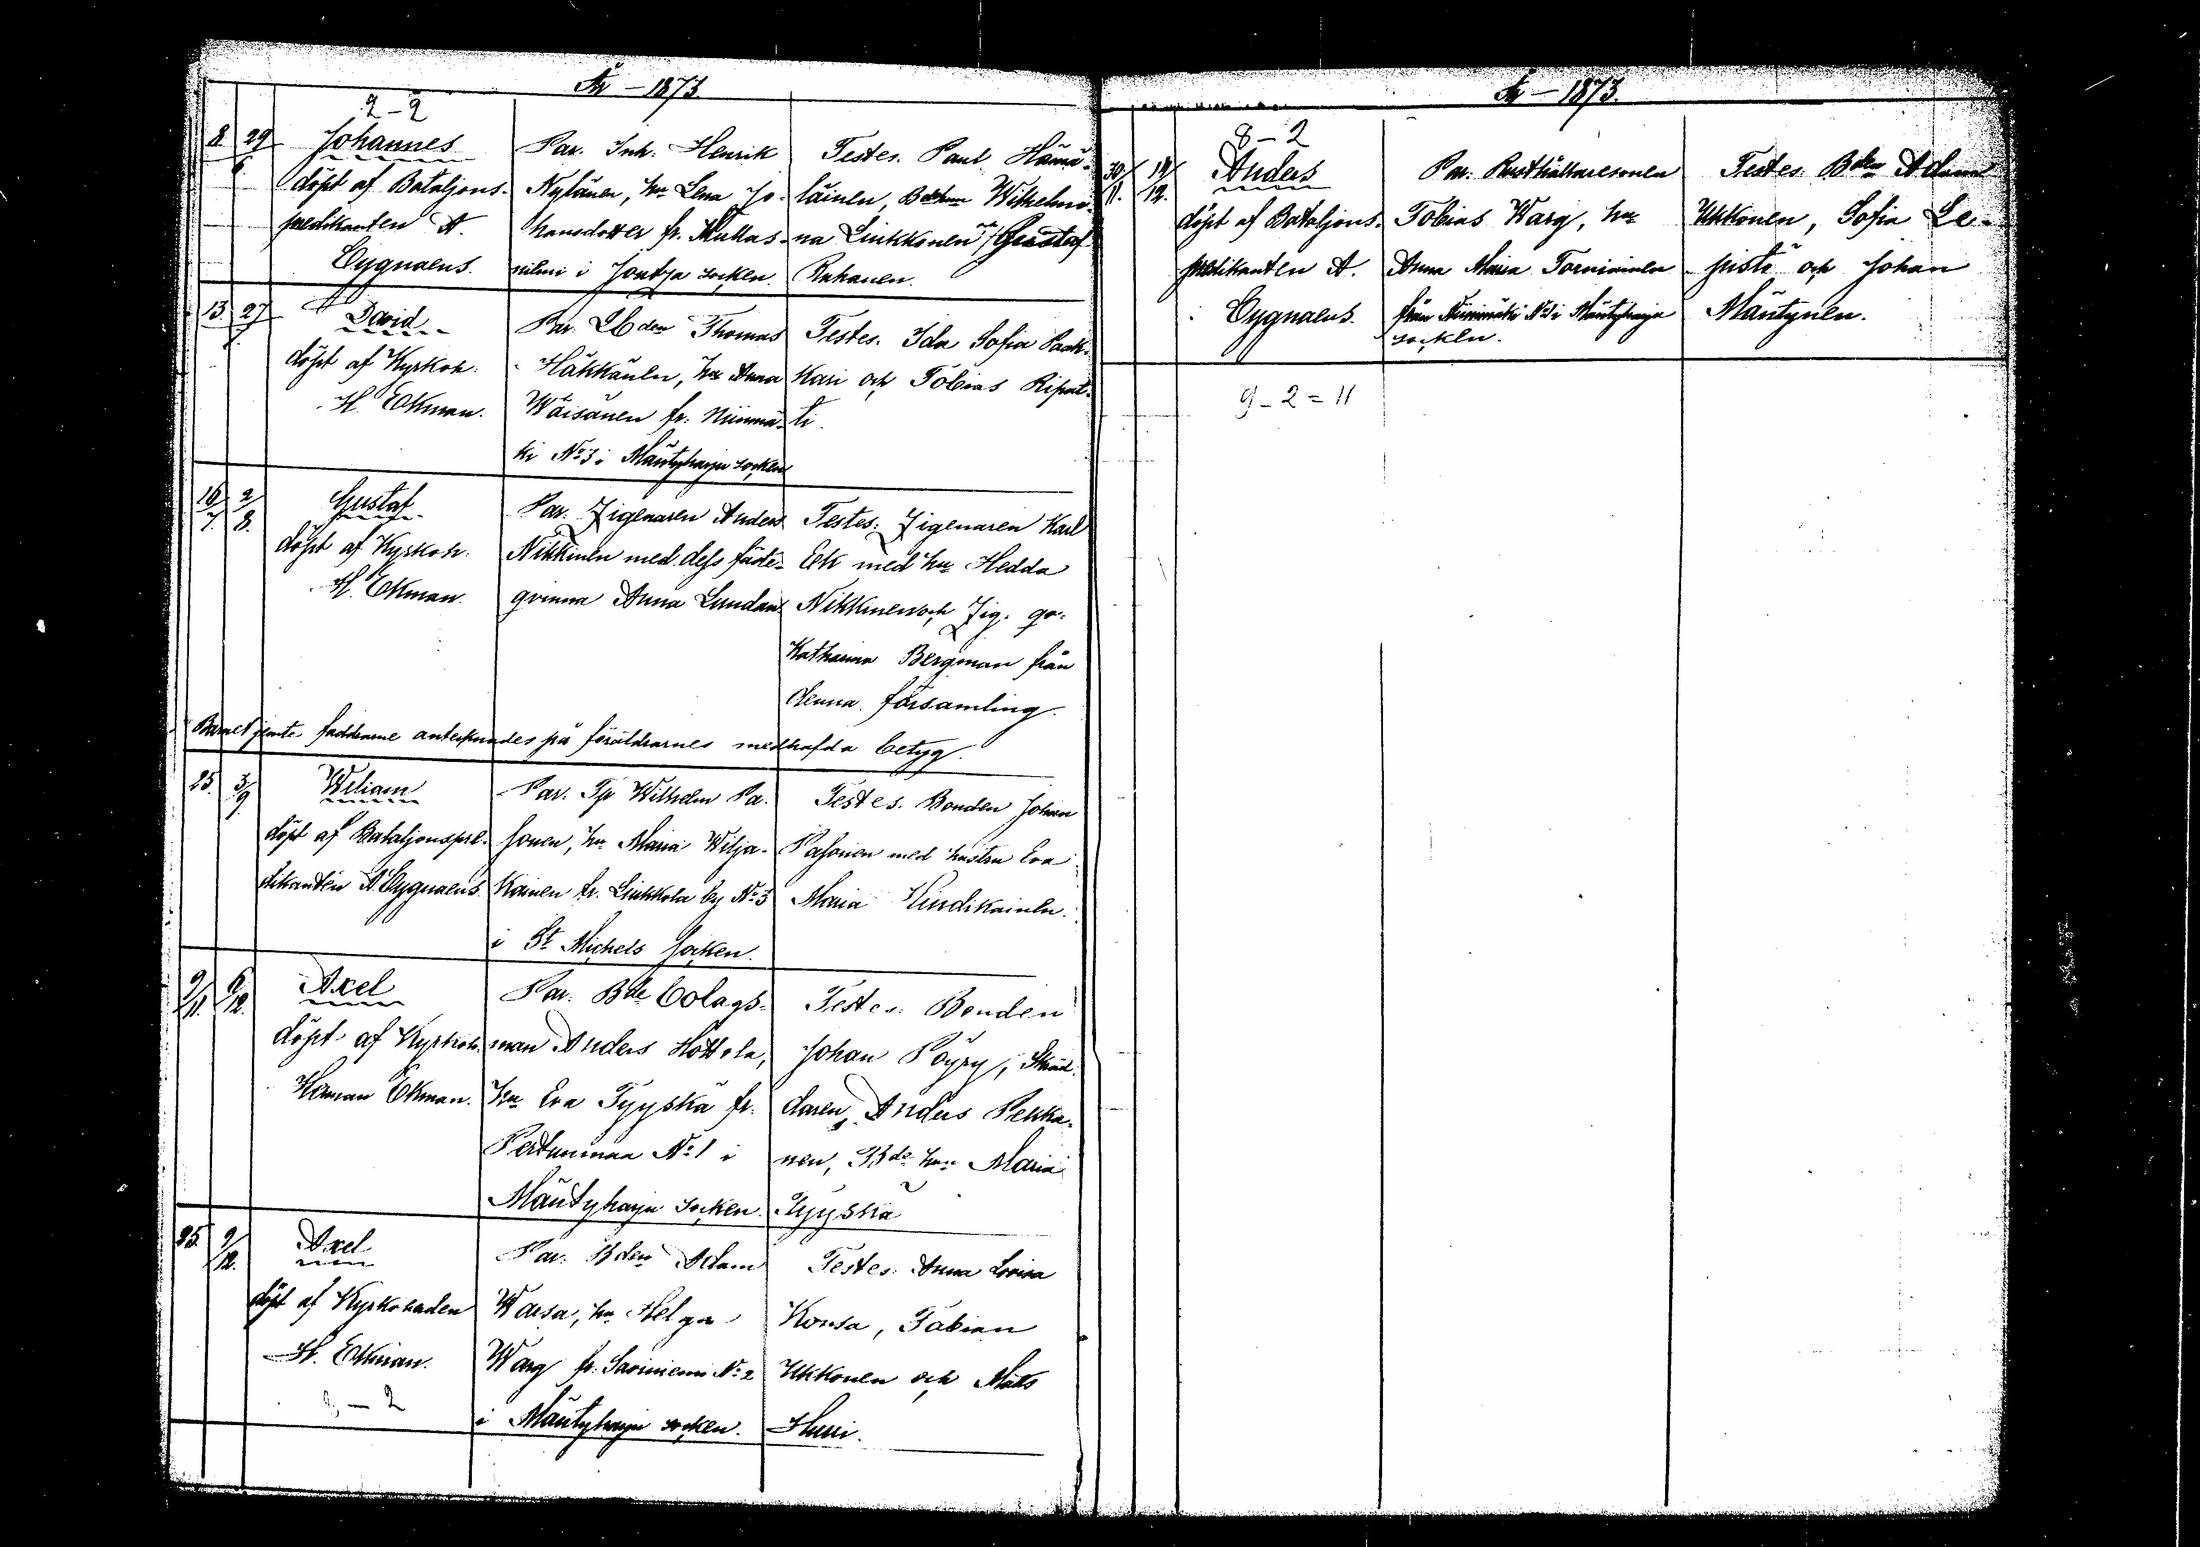 År – 1873
2 – 2
8. 29/6
Johannes
döpt af Bataljons-
predikanten A.
Cygnaeus.
Par. Inh. Henrik
Nylänen, hu Lena Jo-
hansdotter fr.
i Joutsa socken.
Testes. Paul Hämä-
läinen, Wilhelmi-
na Liukkonen Gustaf
13. 27/
David
döpt af Kyrkoh.
H. Ekman.
Par. Thomas
Häkkänen, hu Anna
Wäisänen fr. Niinimä-
ki No 3 i Mäntyharju socken
Testes. Ida Sofia Paak-
kari och Tobias Ripat-
ti.
16/7. 2/8.
Gustaf
döpt af Kyrkoh.
H. Ekman.
Par. Zigenaren Anders
Nikkinen med dess fäste-
qvinna Anna Lundan
Testes: Zigenaren Karl
Ek med hu Hedda
Nikkinen och Zig. qv.
Katharina Bergman från
denna församling.
Barnet jemte faddrarne antecknades på föräldrarnes medhafda betyg.
25. 3/9.
Wiliam
döpt af Bataljonspre-
dikanten A. Cygnaeus.
Par. Tp Wilhelm Pa-
sonen, hu Maria Wilja-
kainen fr. Liukkola by No 3
i St Michels socken.
Testes. Bonden Johan
Pasonen med hustru Eva
Maria Hindikainen.
9/11. 6/12.
Axel
döpt af Kyrkoh.
Herman Ekman.
Par. Bde Bolags-
man Anders Hottola,
hu Eva Tyyskä fr.
Pertunmaa No 1 i
Mäntyharju socken.
Testes: Bonden
Johan Pöyry, Skräd-
daren Anders Pekka-
nen, Bde hu Maria
Tyyskä
25. 9/12.
Axel
döpt af Kyrkoherden
H. Ekman.
9 – 2
Par. Bden Adam
Warsa, hu Helga
Warg fr. Saviniemi No 2
i Mäntyharju socken.
Testes. Anna Lovisa
Korsa, Tabian
Ukkonen och Mats
Hurri.
År – 1873.
8 – 2
30/11. 19/12.
Anders
döpt af Bataljons-
predikanten A.
Cygnaeus.
Par. Rusthållaresonen
Tobias Warg, hu
Anna Maria Torniainen
från Niinimäki No 3 i Mäntyharju
socken.
Testes Bden Adam
Ukkonen, Sofia Le-
pistö och Johan
Mäntynen.
9 – 2 = 11